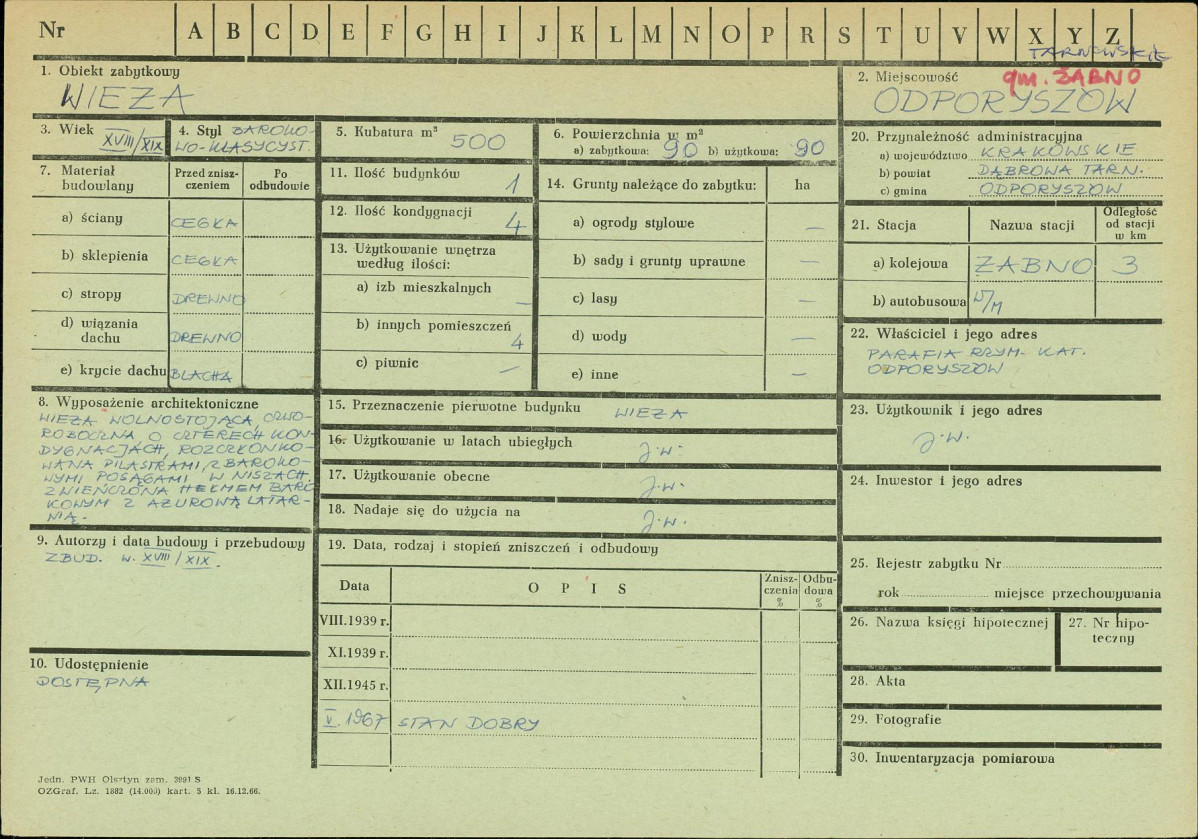 Nr A B C D E F G H I J K L M N O P R S T U V W X Y Z
TARNOWSKIE
1. Obiekt zabytkowy
WIEŻA
2. Miejscowość
gm. ŻABNO
ODPORYSZÓW
3. Wiek XVIII/XIX
4. Styl BAROKO-
WO-KLASYCYST.
5. Kubatura m³ 500
6. Powierzchnia w m²
a) zabytkowa: 90 b) użytkowa: 90
20. Przynależność administracyjna
a) województwo KRAKOWSKIE
b) powiat DĄBROWA TARN.
c) gmina ODPORYSZÓW
7. Materiał budowlany
Przed znisz-
czeniem
Po
odbudowie
a) ściany CEGŁA
b) sklepienia CEGŁA
c) stropy DREWNO
d) wiązania
dachu DREWNO
e) krycie dachu BLACHA
11. Ilość budynków 1
12. Ilość kondygnacji 4
13. Użytkowanie wnętrza
według ilości:
a) izb mieszkalnych —
b) innych pomieszczeń 4
c) piwnic —
14. Grunty należące do zabytku: ha
a) ogrody stylowe —
b) sady i grunty uprawne —
c) lasy —
d) wody —
e) inne —
21. Stacja Nazwa stacji Odległość
od stacji
w km
a) kolejowa ŻABNO 3
b) autobusowa W/M
22. Właściciel i jego adres
PARAFIA RZYM- KAT.
ODPORYSZÓW
8. Wyposażenie architektoniczne
WIEŻA WOLNOSTOJĄCA, CZWO-
ROBOCZNA O CZTERECH KON-
DYGNACJACH, ROZCZŁONKO-
WANA PILASTRAMI, Z BAROKO-
WYMI POSĄGAMI W NISZACH.
ZWIEŃCZONA HEŁMEM BARO
KOWYM Z AŻUROWĄ LATAR-
NIĄ.
15. Przeznaczenie pierwotne budynku WIEŻA
16. Użytkowanie w latach ubiegłych J.w.
17. Użytkowanie obecne J.w.
18. Nadaje się do użycia na J.w.
23. Użytkownik i jego adres
J.w.
24. Inwestor i jego adres
9. Autorzy i data budowy i przebudowy
ZBUD. W. XVIII/XIX.
19. Data, rodzaj i stopień zniszczeń i odbudowy
Data OPIS Znisz-
czenia
% Odbu-
dowa
%
VIII.1939 r.
XI.1939 r.
XII.1945 r.
V.1967 STAN DOBRY
25. Rejestr zabytku Nr
rok miejsce przechowywania
26. Nazwa księgi hipotecznej
27. Nr hipo-
teczny
10. Udostępnienie
DOSTĘPNA
28. Akta
29. Fotografie
30. Inwentaryzacja pomiarowa
Jedn. PWH Olsztyn zam. 3991 S
OZGraf. Lz. 1882 (14.000) kart. 5 kl. 16.12.66.